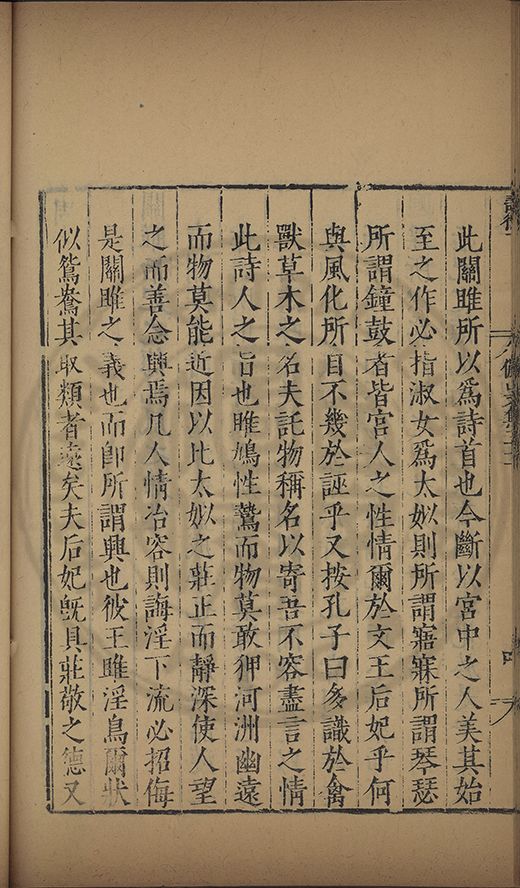 此關雎所以爲詩首也今斷以宮中之人美其始
至之作必指淑女爲太姒則所謂寤寐所謂琴瑟
所謂鐘鼓者皆宮人之性情爾於文王后妃乎何
與風化所目不幾於誣乎又按孔子曰多識於禽
獸草木之名夫託物稱名以寄吾不容盡言之情
此詩人之旨也雎鳩性鷙而物莫敢狎河洲幽遠
而物莫能近因以比太姒之莊正而靜深使人望
之而善念興焉凡人情冶容則誨淫下流必招侮
是關雎之義也而卽所謂興也彼王雎淫鳥爾狀
似鴛鴦其取類者褻矣夫后妃旣具莊敬之德又